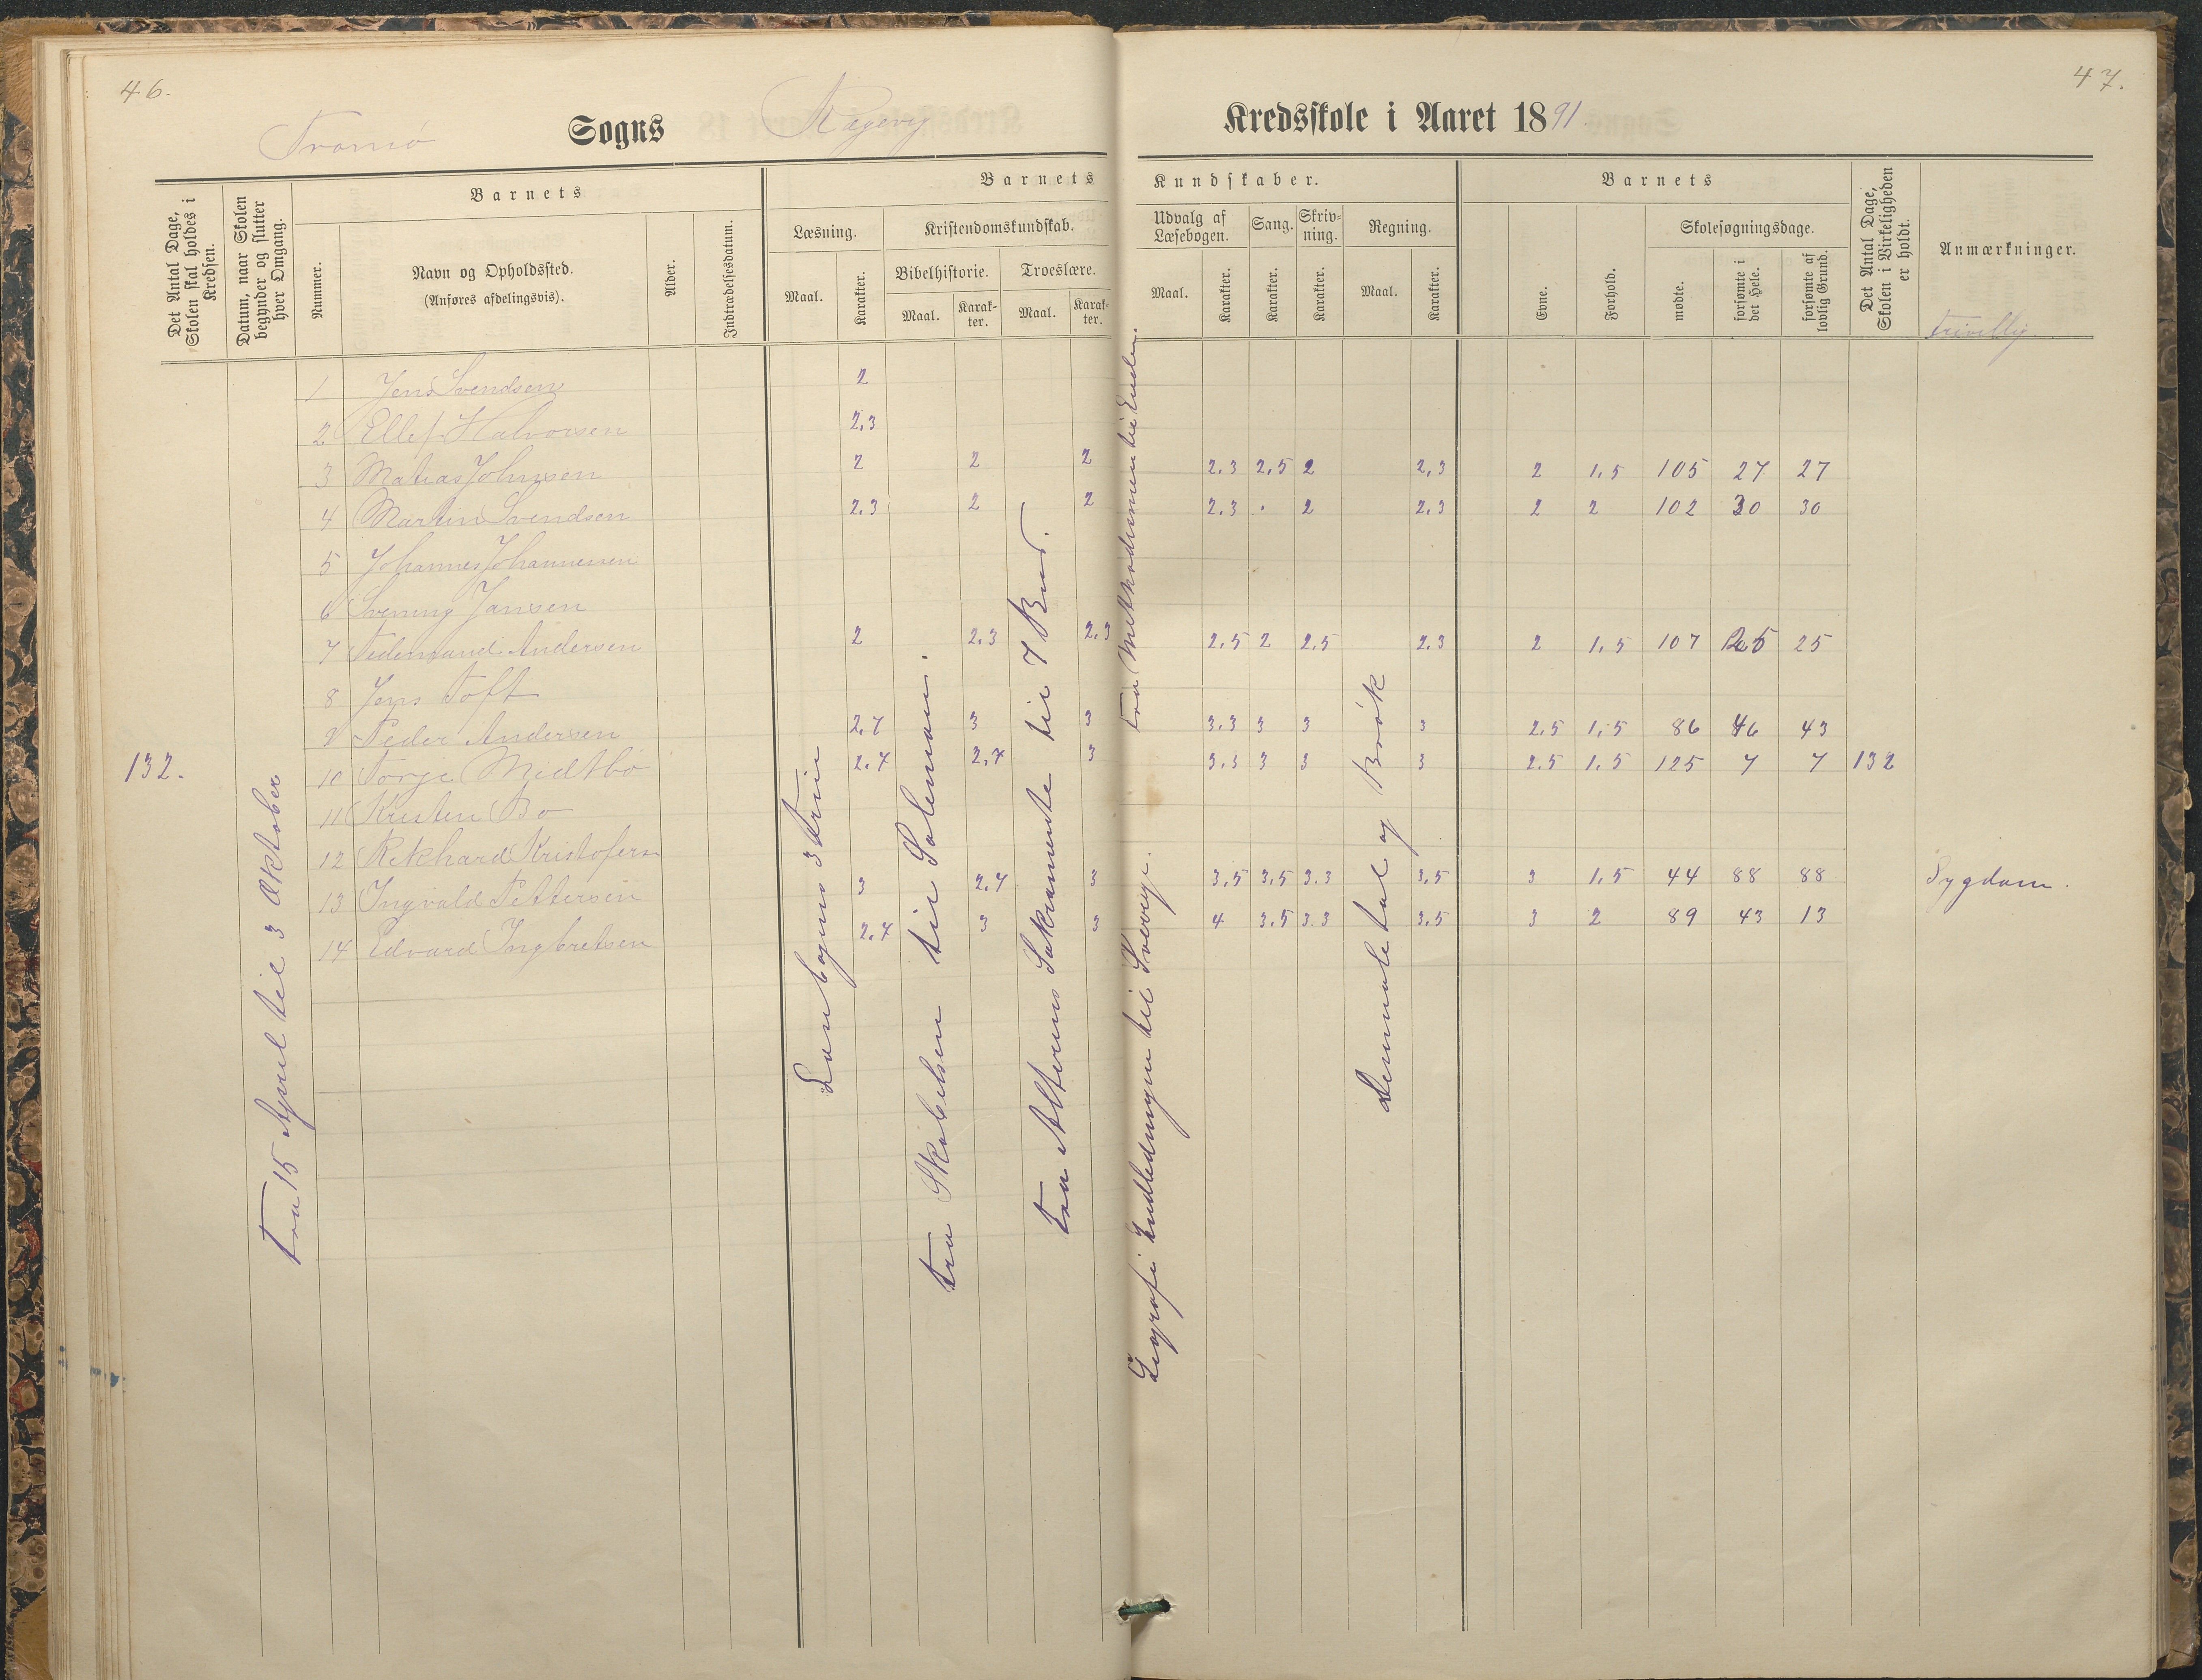 46.
47.
Tromö Sogns Kredsskole i Aaret 1891
Det Antal Dage, Skolen skal holdes i Kredsen.
Datum, naar Skolen begynder og slutter hver Omgang.
Barnets
Nummer.
Navn og Opholdssted.
(Anføres afdelingsvis).
Alder.
Indtrædelsesdatum.
Barnets Kundskaber.
Læsning.
Maal.
Karakter.
Kristendomskundskab.
Bibelhistorie.
Maal.
Karakter.
Troeslære.
Maal.
Karakter.
Udvalg af Læsebogen.
Maal.
Karakter.
Sang.
Karakter.
Skrivning.
Karakter.
Regning.
Maal.
Karakter.
Barnets
Evne.
Forhold.
Skolesøgningsdage.
mødte.
forsømte i det Hele.
forsømte af lovlig Grund.
Det Antal Dage, Skolen i Virkeligheden er holdt.
Anmærkninger.
1 Jens Svendsen 2
2 Ellef Halvorsen 2,3
3 Matias Johnsen 2 2 2 2.3 2,5 2 2,3 2 1.5 105 27 27
4 Martin Svendsen 2.3 2 2 2.3 . 2 2.3 2 2 102 30 30
5 Johannes Johannesen
6 Svening Jansen
7 Tidemand Andersen 2 2.3 2.3 2.5 2 2.5 2.3 2 1.5 107 25 25
8 Jens Toft
9 Peder Andersen 2.7 3 3 3.3 3 3 3 2.5 1.5 86 46 43
132. 10 Torje Midtbö 2.7 2,7 3 3.3 3 3 3 2.5 1.5 125 7 7 132
11 Kristen Bo
12 Rikhard Kristofersn
13 Ingvald Pettersen 3 2.7 3 3,5 3.5 3.3 3.5 3 1.5 44 88 88 Sygdom.
14 Edvard Ingbretsen 2.7 3 3 4 3.5 3.3 3.5 3 2 89 43 13
Fra 15 April til 3 Oktober
Fra Skabelsen til Salemon.
Fra Alterens Sakramente til 7 Bud.
Geografi Indledningen til Sverige.
Desimaletal og Brøk